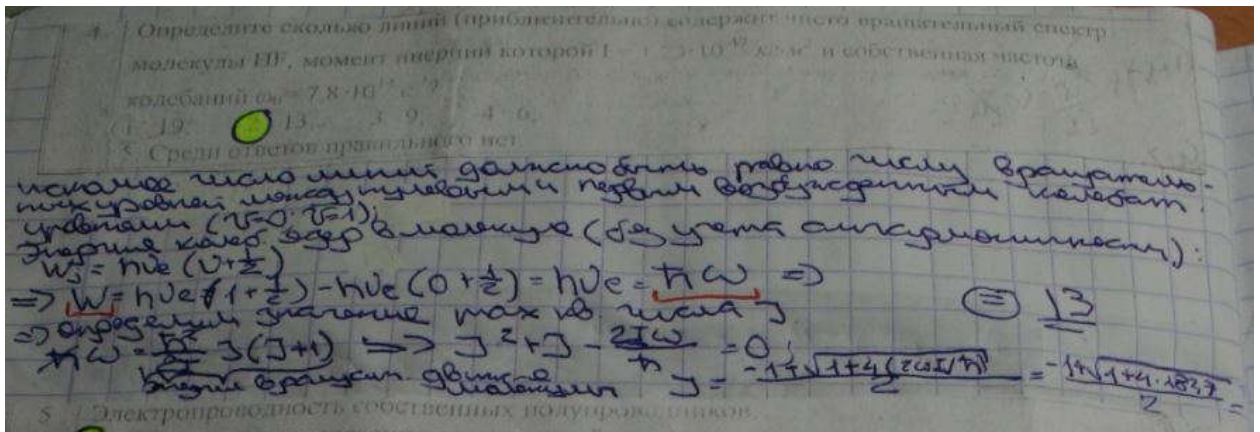 4. Определите сколько линий (приблизительно) содержит чисто вращательный спектр
молекулы HF, момент инерции которой I = 1.33·10⁻⁴⁷ кг·м² и собственная частота
колебаний ω₀ = 7,8·10¹⁴ с⁻¹?
1. 19; 13; 3. 9; 4. 6;
5. Среди ответов правильного нет
искомое число линий должно быть равно числу вращатель-
ных уровней между нулевым и первым возбужденным колебат.
уровнями (v=0; v=1);
Энергия колеб. ядер в молекуле (без учета ангармоничности):
= hνe (v+½)
=> W = hνe (1+½) - hνe (0+½) = hνe = ħω =>
=> определим значение max кв. числа J = 13
ħω = J(J+1) => J² + J - 2Iω/ħ = 0;
Энергия вращат. движения молекулы J = (-1+√(1+4(2ωI/ħ)))/2 = (-1+√(1+4·183,7))/2 =
5. Электропроводность собственных полупроводников.